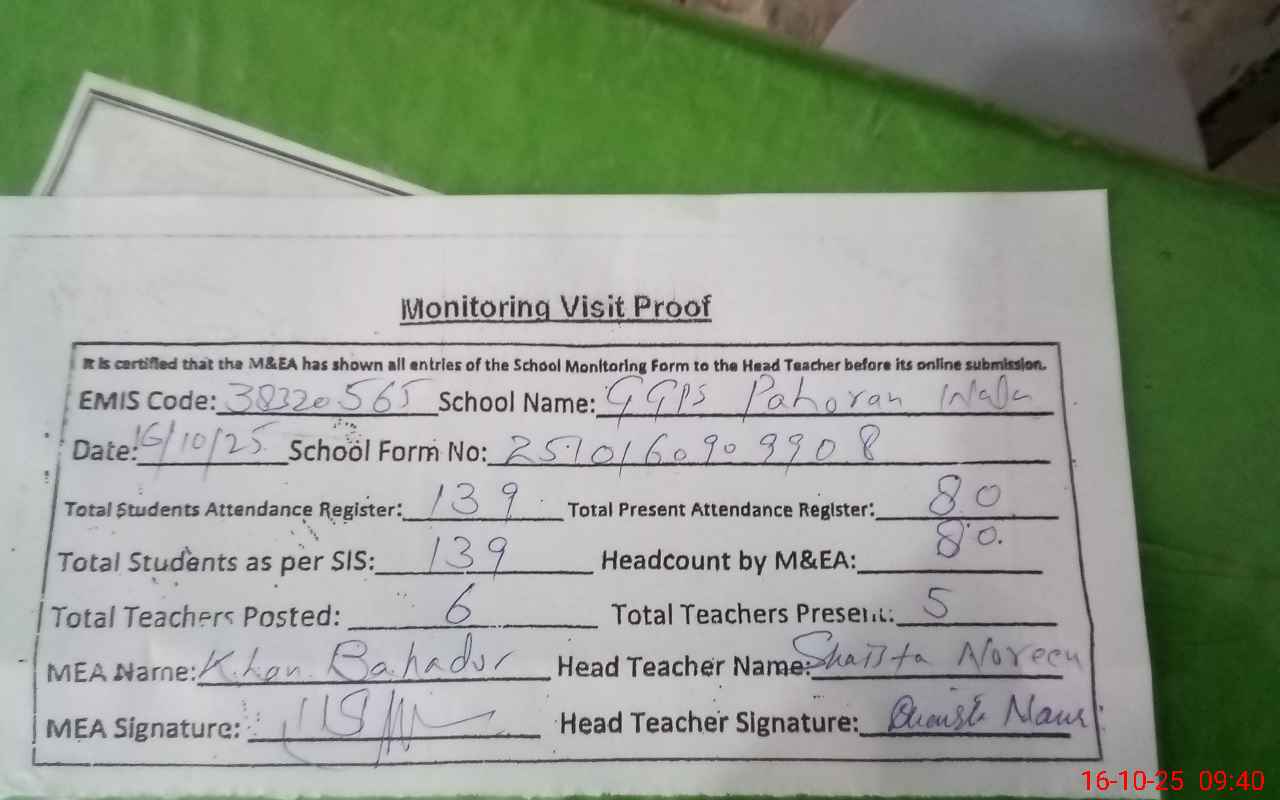 Monitoring Visit Proof
It is certified that the M&EA has shown all entries of the School Monitoring Form to the Head Teacher before its online submission.
EMIS Code: 38320565 School Name: GGPS Pahoran Wala
Date: 16/10/25 School Form No: 2510160909908
Total Students Attendance Register: 139 Total Present Attendance Register: 80
Total Students as per SIS: 139 Headcount by M&EA: 80.
Total Teachers Posted: 6 Total Teachers Present: 5
MEA Name: Khan Bahadur Head Teacher Name: Shaista Noreen
MEA Signature: Head Teacher Signature:
16-10-25 09:40